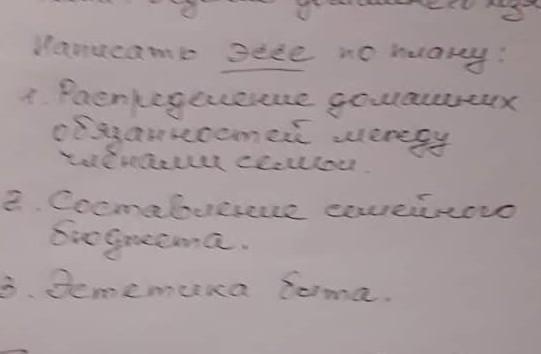 домашнего
Написать эссе по плану:
1. Распределение домашних
обязанностей между
членами семьи.
2. Составление семейного
бюджета.
3. Эстетика быта.